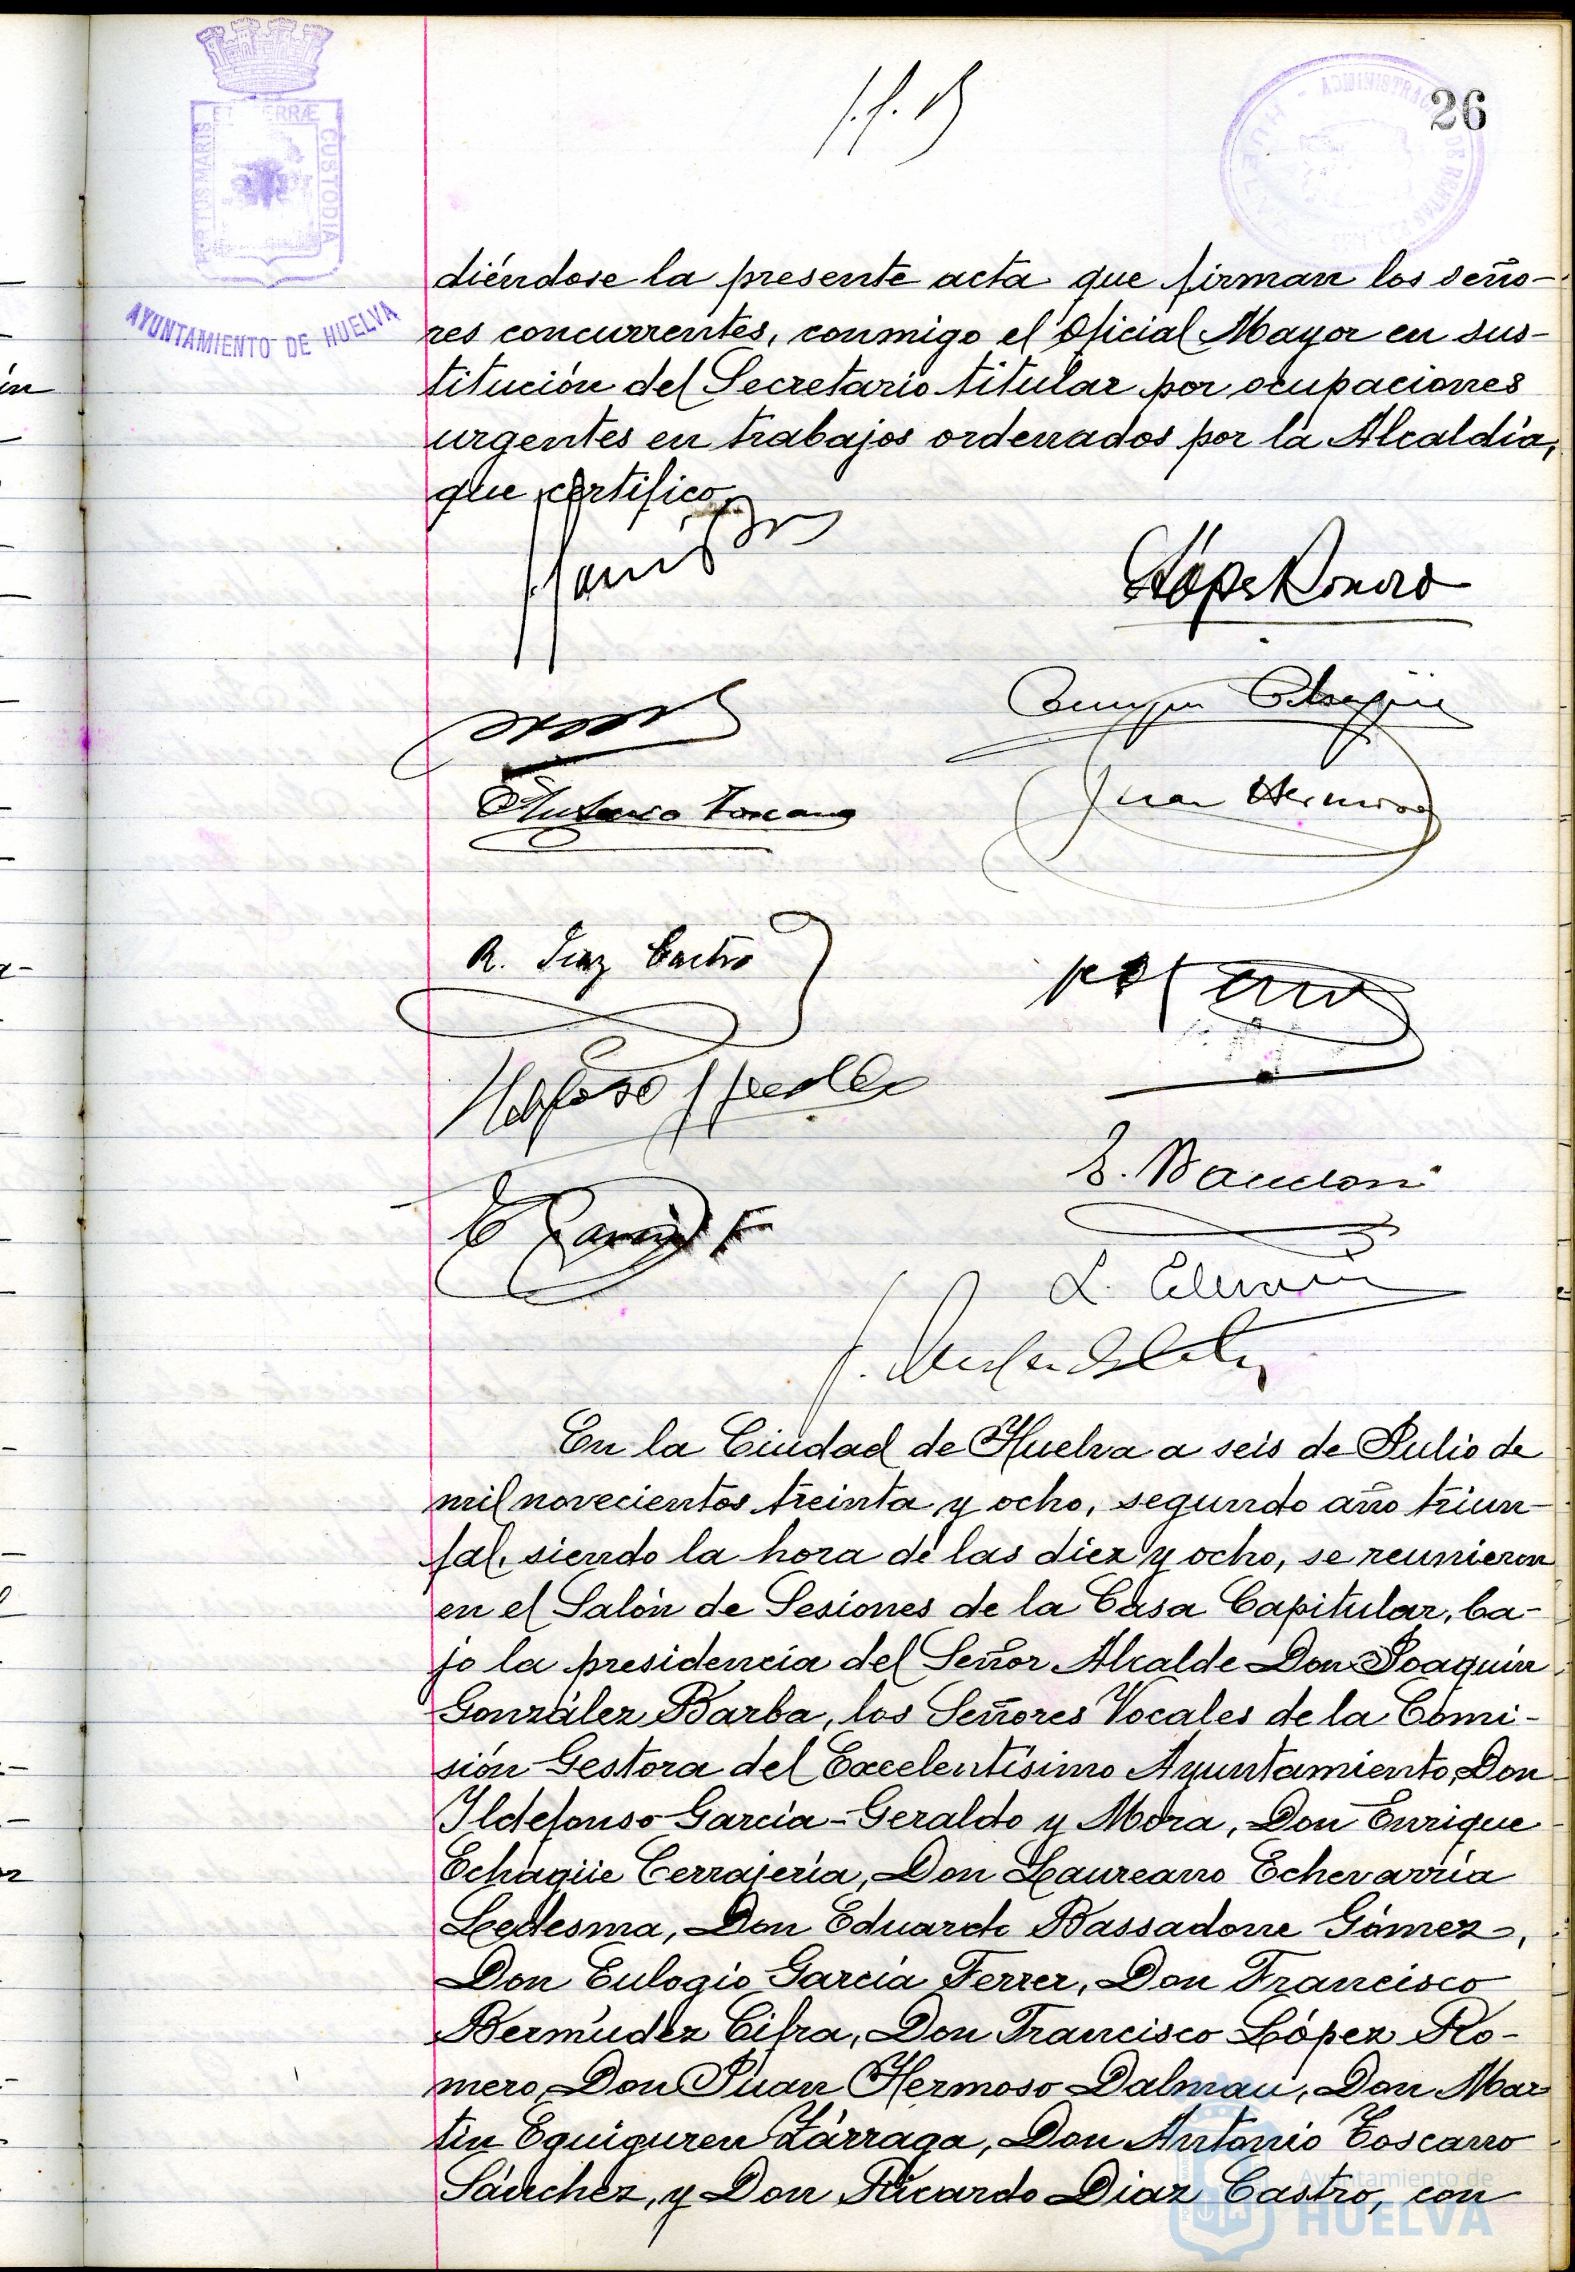 26
PORTUS MARIS ET TERRÆ CUSTODIA
AYUNTAMIENTO DE HUELVA
diéndose la presente acta que firman los seño-
res concurrentes, conmigo el Oficial Mayor en sus-
titución del Secretario titular por ocupaciones
urgentes en trabajos ordenados por la Alcaldía,
que certifico.
López Romero
Enrique Echagüe
Antonio Toscano
Juan Hermoso
R. Diaz Castro
En la Ciudad de Huelva a seis de Julio de
mil novecientos treinta y ocho, segundo año triun-
fal, siendo la hora de las diez y ocho, se reunieron
en el Salón de Sesiones de la Casa Capitular, ba-
jo la presidencia del Señor Alcalde Don Joaquín
González Barba, los Señores Vocales de la Comi-
sión Gestora del Excelentísimo Ayuntamiento, Don
Ildefonso García-Geraldo y Mora, Don Enrique
Echagüe Cerrajería, Don Laureano Echevarría
Ledesma, Don Eduardo Bassadone Gómez,
Don Eulogio García Ferrer, Don Francisco
Bermúdez Cifra, Don Francisco López Ro-
mero, Don Juan Hermoso Dalmau, Don Mar
tín Eguiguren Zárraga, Don Antonio Toscano
Sánchez, y Don Ricardo Diaz Castro, con
Ayuntamiento de
HUELVA